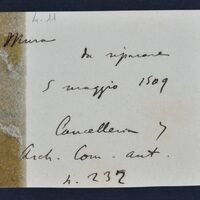 L. 11
Mura
da riparare
5 maggio 1509
Cancelleria 7
Arch. Com. ant.
L. 232